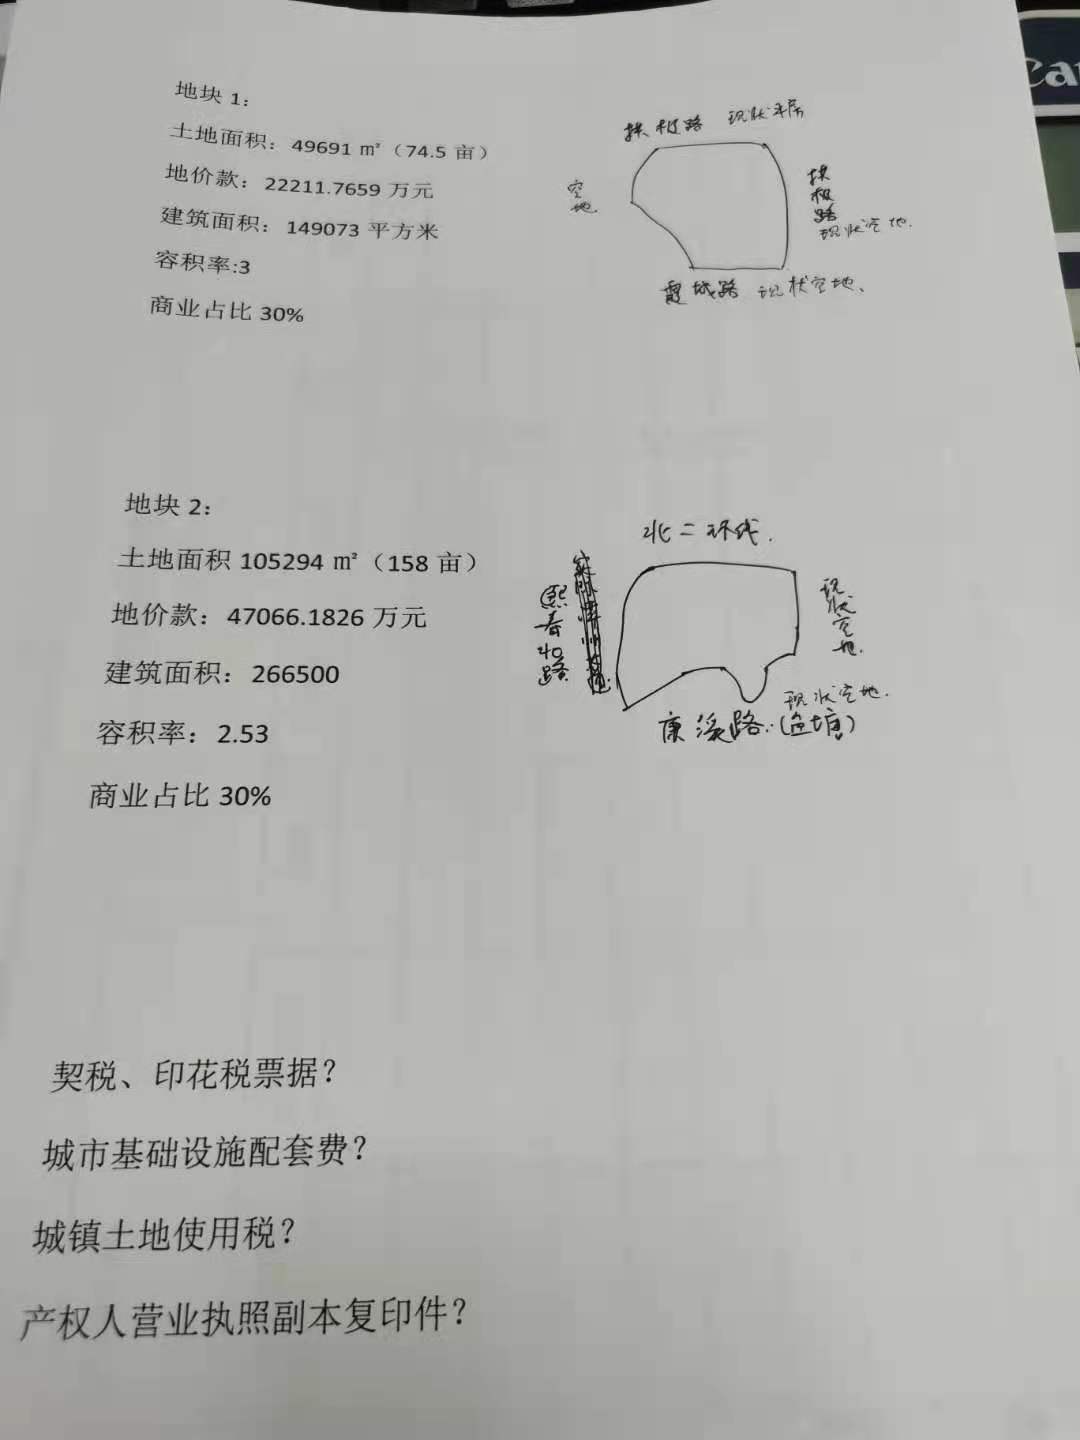 地块 1：
土地面积：49691 ㎡（74.5 亩）
地价款：22211.7659 万元
建筑面积：149073 平方米
容积率:3
商业占比 30%
路 现状平房
空地
路
现状空地.
霞城路 现状空地、
地块 2：
土地面积 105294 ㎡（158 亩）
地价款：47066.1826 万元
建筑面积：266500
容积率：2.53
商业占比 30%
北二环线.
熙春北路
现状空地.
现状空地.
康溪路.(鱼塘)
契税、印花税票据？
城市基础设施配套费？
城镇土地使用税？
产权人营业执照副本复印件？
Can